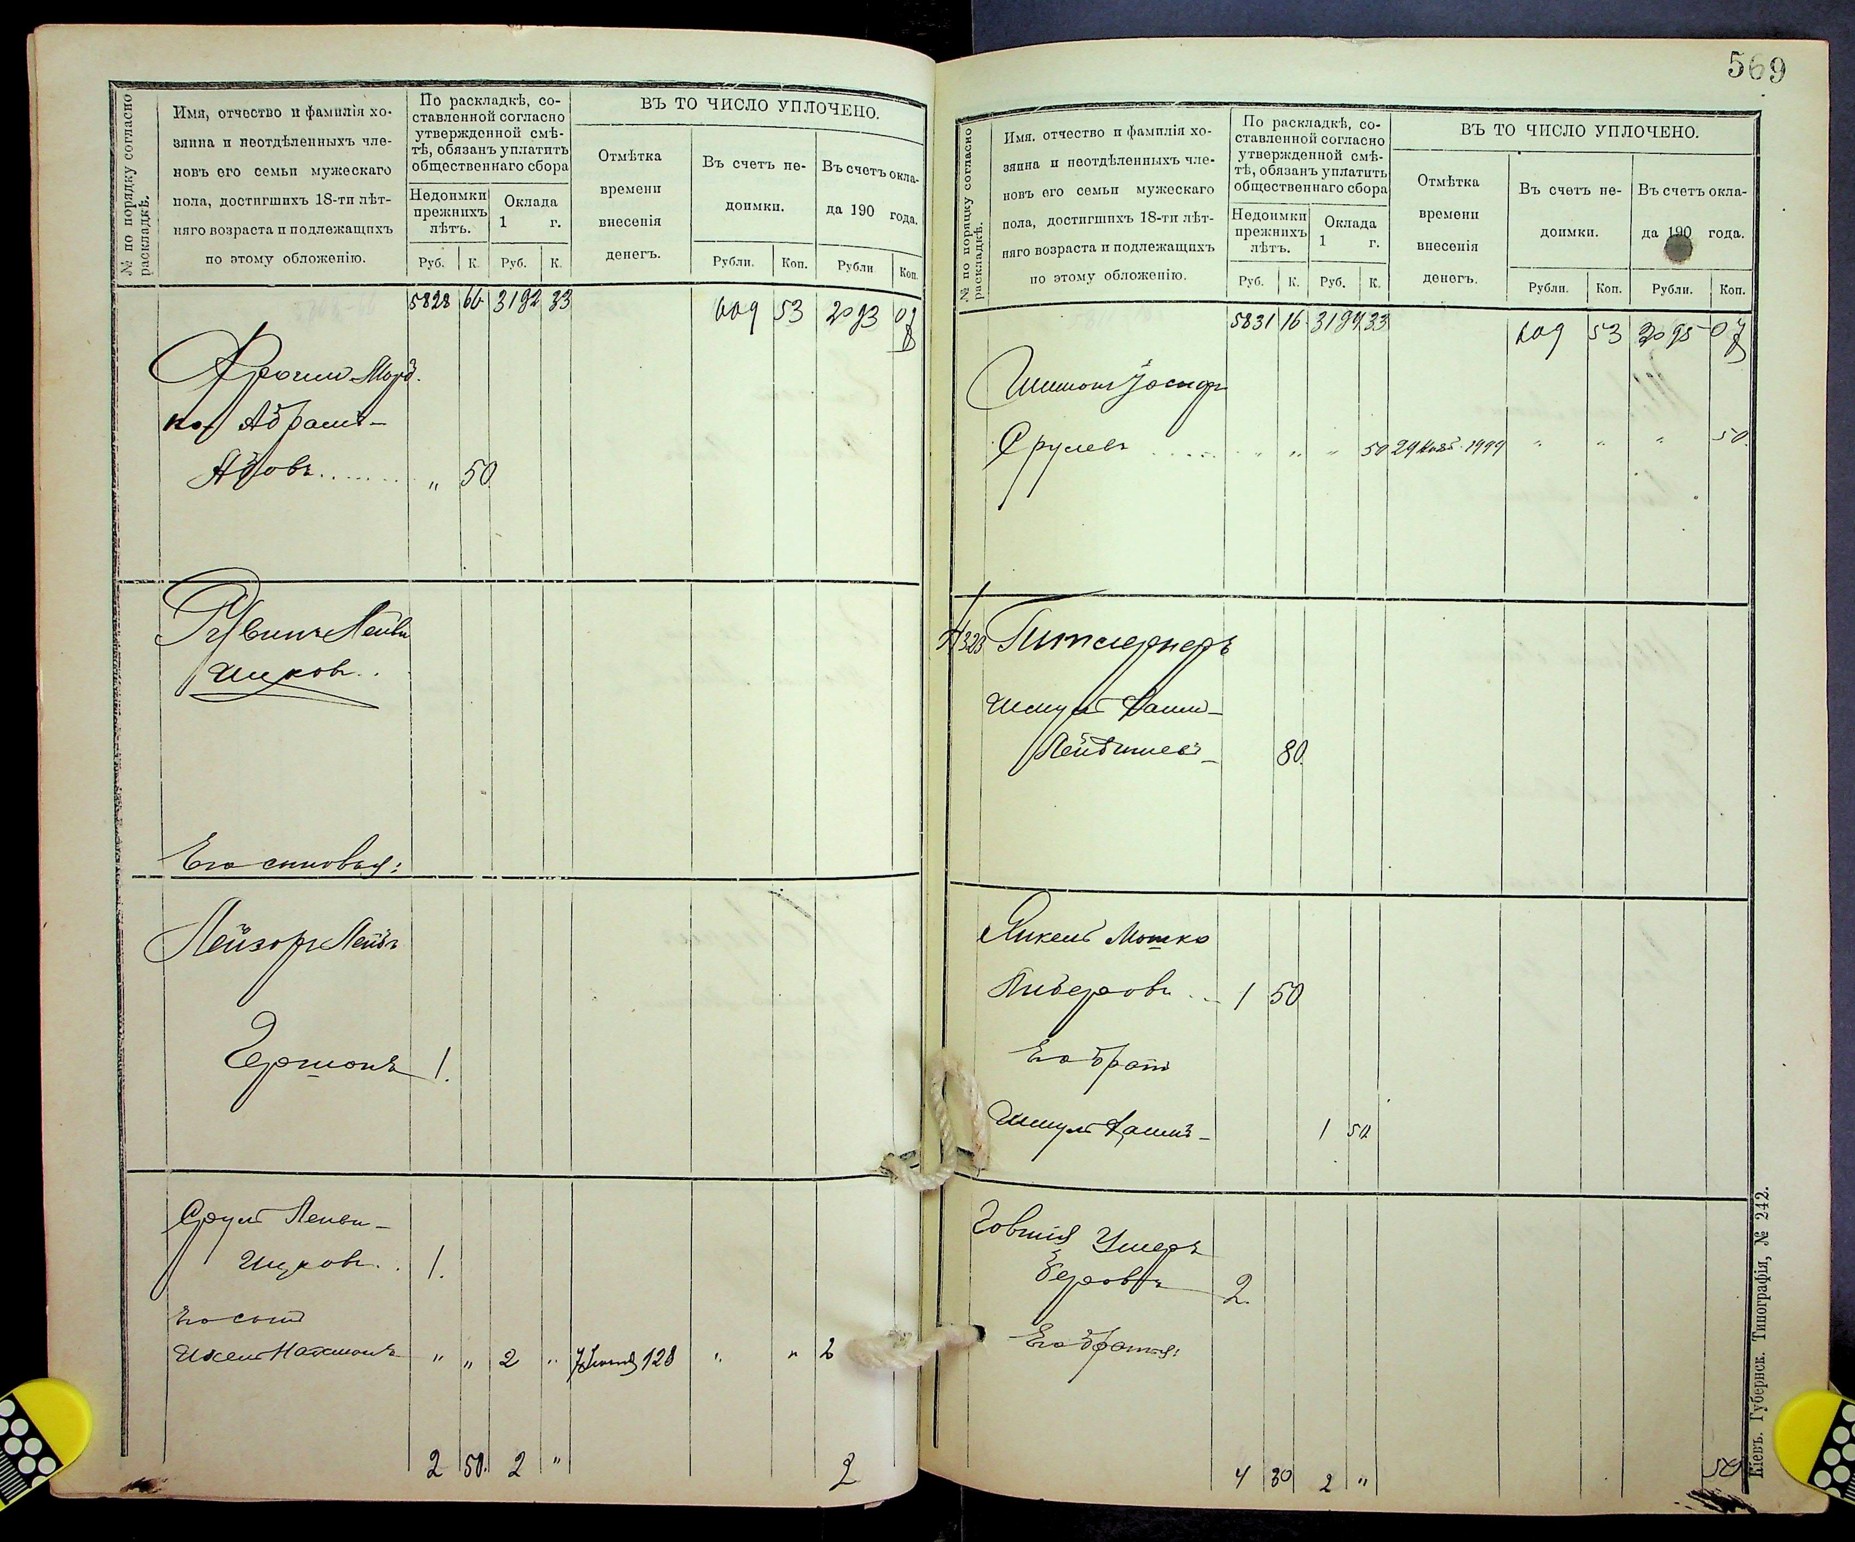 № по порядку согласно раскладкѣ.
Имя, отчество и фамилія хо-
зяина и неотдѣленныхъ чле-
новъ его семьи мужескаго
пола, достигшихъ 18-ти лѣт-
няго возраста и подлежащихъ
по этому обложенію.
По раскладкѣ, со-
ставленной согласно
утвержденной смѣ-
тѣ, обязанъ уплатить
общественнаго сбора
Недоимки
прежнихъ
лѣтъ.
Оклада
1 г.
Руб. К. Руб. К.
ВЪ ТО ЧИСЛО УПЛОЧЕНО.
Отмѣтка
времени
внесенія
денегъ.
Въ счетъ не-
доимки.
Въ счетъ окла-
да 190 года.
Рубли. Коп. Рубли Коп.
5828 66 3192 33 609 53 2093 07
Абрамъ-
" 50
Рувинъ Лейби
Ицковъ..
Его сыновья:
Лейзоръ Лейбъ
Гершонъ 1.
Сруль Лейби-
Ицковъ.. 1.
Его сынъ
" " 2 " 128 " " 2
2 50. 2 " 2
569
№ по порядку согласно раскладкѣ.
Имя, отчество и фамилія хо-
зяина и неотдѣленныхъ чле-
новъ его семьи мужескаго
пола, достигшихъ 18-ти лѣт-
няго возраста и подлежащихъ
по этому обложенію.
По раскладкѣ, со-
ставленной согласно
утвержденной смѣ-
тѣ, обязанъ уплатить
общественнаго сбора
Недоимки
прежнихъ
лѣтъ.
Оклада
1 г.
Руб. К. Руб. К.
ВЪ ТО ЧИСЛО УПЛОЧЕНО.
Отмѣтка
времени
внесенія
денегъ.
Въ счетъ не-
доимки.
Въ счетъ окла-
да 190 года.
Рубли. Коп. Рубли. Коп.
5831 16 3194 33 609 53 2095 07
Шимонъ Іосифъ
Срулевъ " " " 50 29 1999 " " " 50
Шмуль Хаим-
Лейбишевъ 80.
Янкель Мошко
Либеровъ 1 50
Его братъ
Шмуль Хаимъ- 1 50
Іовшія Ушеръ
Беровъ 2.
Его братья:
4 30 2 " 50
Кіевъ. Губернск. Типографія, № 242.